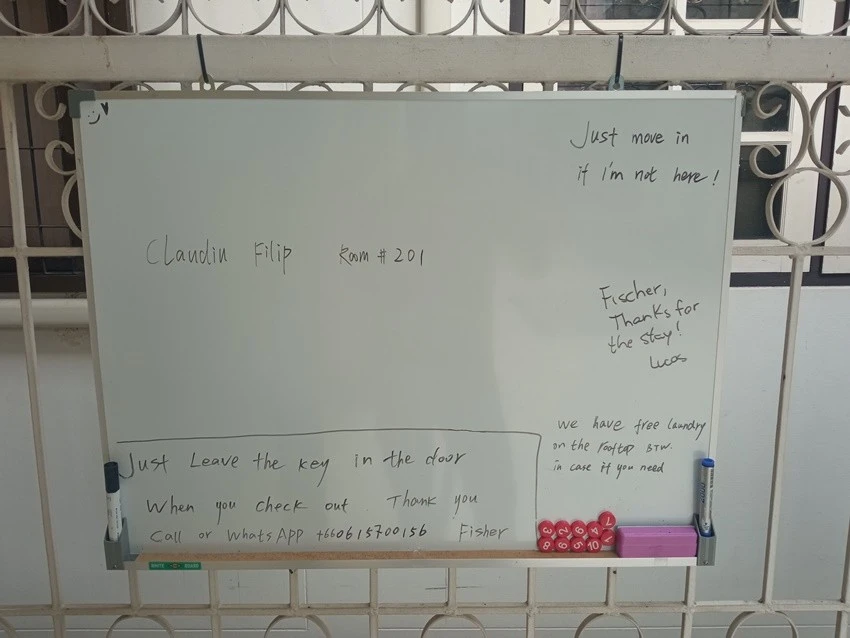 Just move in
if I'm not here!
Claudiu Filip Room # 201
Fischer,
Thanks for
the stay!
Lucas
we have free laundry
on the rooftop BTW.
in case if you need
Just Leave the key in the door
When you check out Thank you
Call or WhatsApp +660615700156 Fisher